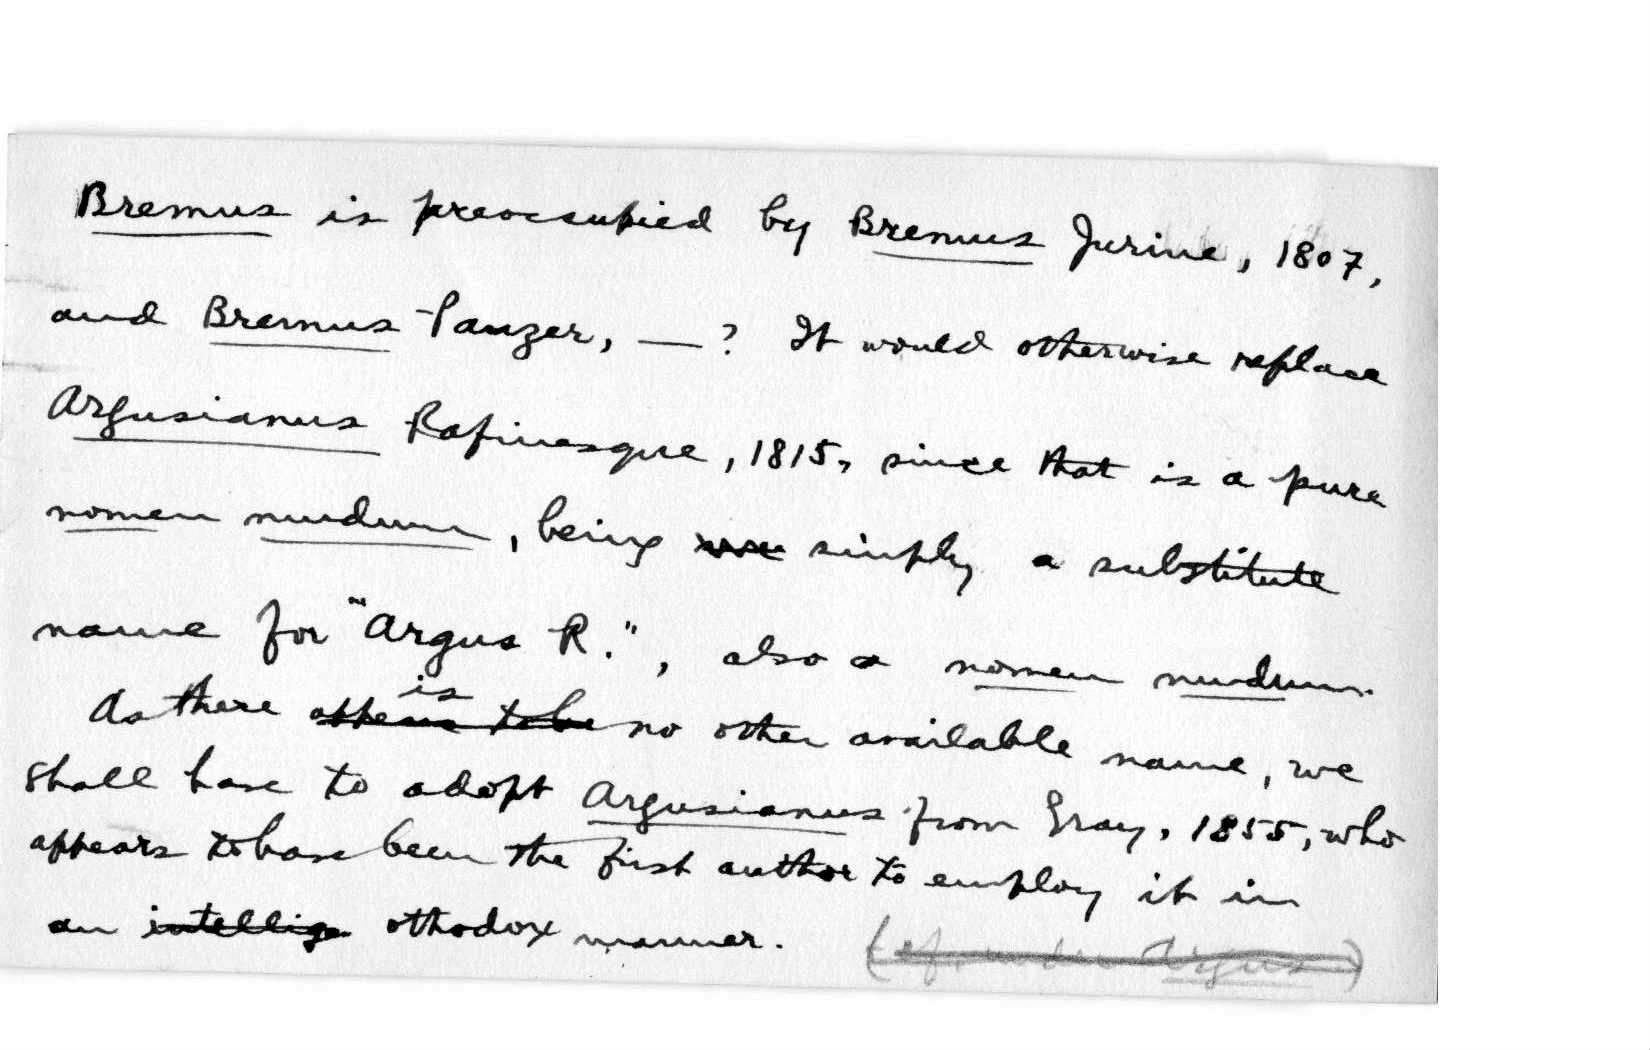 Bremus is preoccupied by Bremus Jurine, 1807,
and Bremus Panzer, — ? It would otherwise replace
Argusianus Rafinesque, 1815, since that is a pure
nomen nudum, being simply a substitute
name for "Argus R.", also a nomen nudum.
As there appears to be is no other available name, we
shall have to adopt Argusianus from Gray, 1855, who
appears to have been the first author to employ it in
an intellige othodox manner. (cf. under Argus)